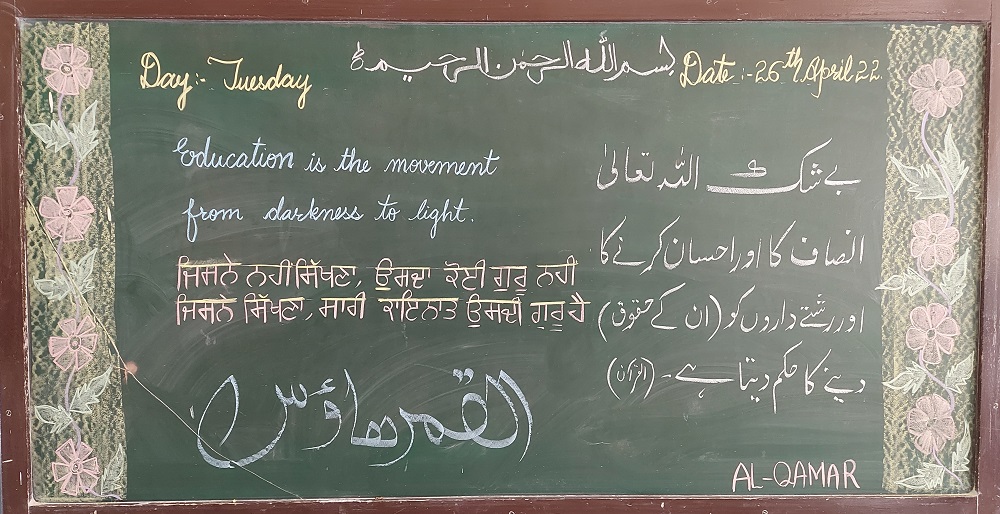 بسم اللہ الرحمٰن الرحیم
Day:- Tuesday
Date :- 26th April 22
Education is the movement
from darkness to light.
ਜਿਸਨੇ ਨਹੀਂ ਸਿੱਖਣਾ, ਉਸਦਾ ਕੋਈ ਗੁਰੂ ਨਹੀ
ਜਿਸਨੇ ਸਿੱਖਣਾ, ਸਾਰੀ ਕਾਇਨਾਤ ਉਸਦੀ ਗੁਰੂ ਹੈ
القمر ہاؤس
بے شک اللہ تعالیٰ
انصاف کا اور احسان کرنے کا
اور رشتے داروں کو (ان کے حقوق)
دینے کا حکم دیتا ہے۔ (القرآن)
AL-QAMAR